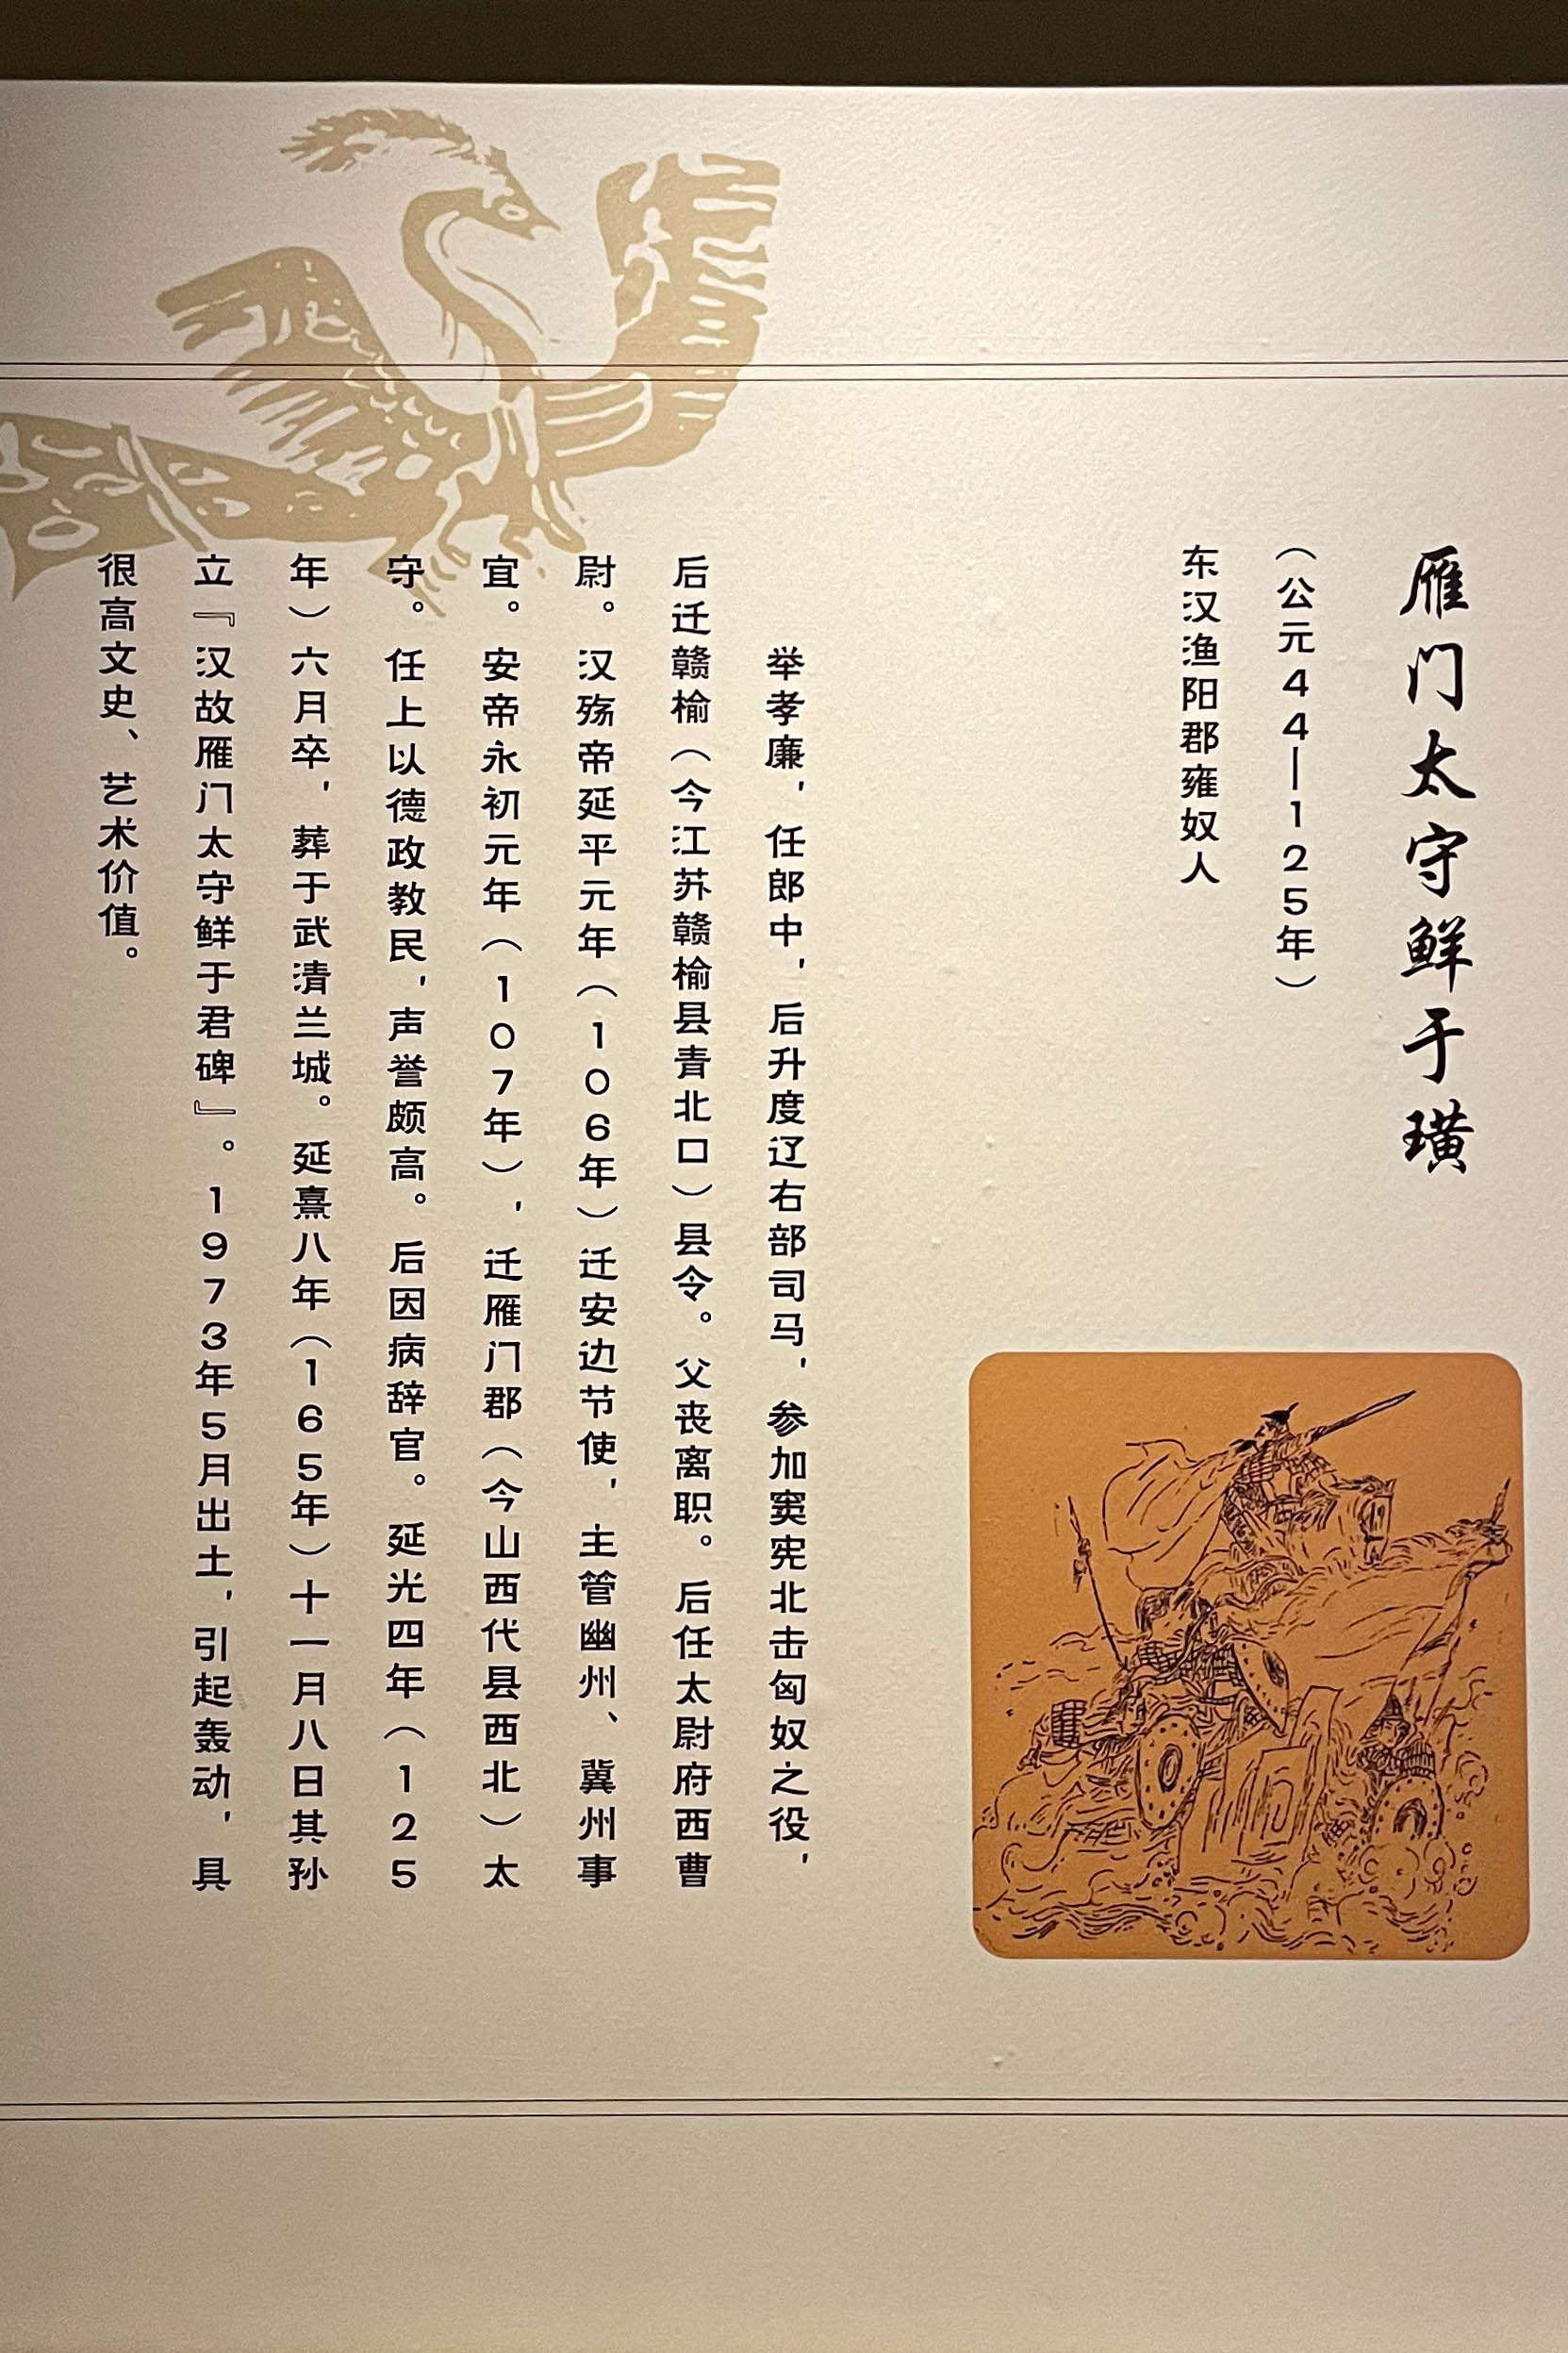 雁门太守鲜于璜
（公元44—125年）
东汉渔阳郡雍奴人
举孝廉，任郎中，后升度辽右部司马，参加窦宪北击匈奴之役，
后迁赣榆（今江苏赣榆县青北口）县令。父丧离职。后任太尉府西曹
尉。汉殇帝延平元年（106年）迁安边节使，主管幽州、冀州事
宜。安帝永初元年（107年），迁雁门郡（今山西代县西北）太
守。任上以德政教民，声誉颇高。后因病辞官。延光四年（125
年）六月卒，葬于武清兰城。延熹八年（165年）十一月八日其孙
立『汉故雁门太守鲜于君碑』。1973年5月出土，引起轰动，具
很高文史、艺术价值。